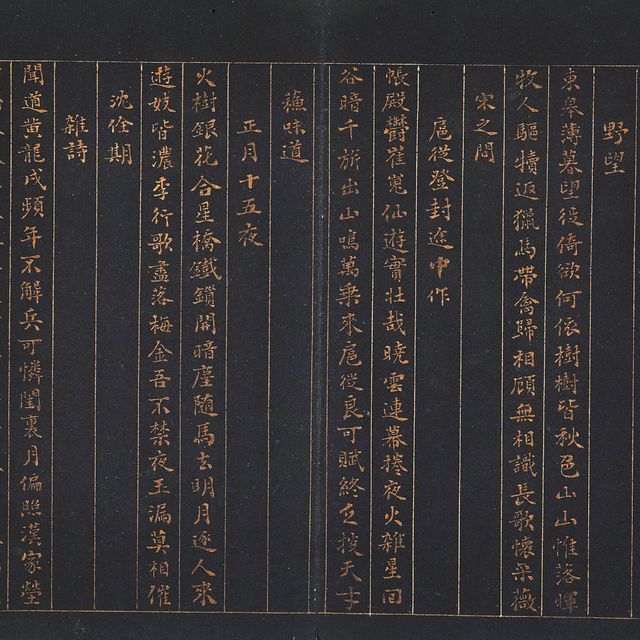 野望
東皋薄暮望徙倚欲何依樹樹皆秋色山山惟落暉
牧人驅犢返獵馬帶禽歸相顧無相識長歌懷采薇
宋之問
扈從登封途中作
帳殿鬱崔嵬仙遊實壯哉曉雲連幕捲夜火雜星回
谷暗千旂出山鳴萬乘來扈從良可賦終乏掞天才
蘓味道
正月十五夜
火樹銀花合星橋鐵鎖開暗塵隨馬去明月逐人來
遊妓皆濃李行歌盡落梅金吾不禁夜玉漏莫相催
沈佺期
雜詩
聞道黃龍戍頻年不解兵可憐閨裏月偏照漢家營